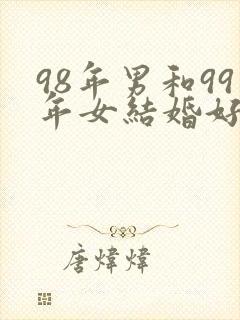 98年男和99
年女結婚好
唐煒煒